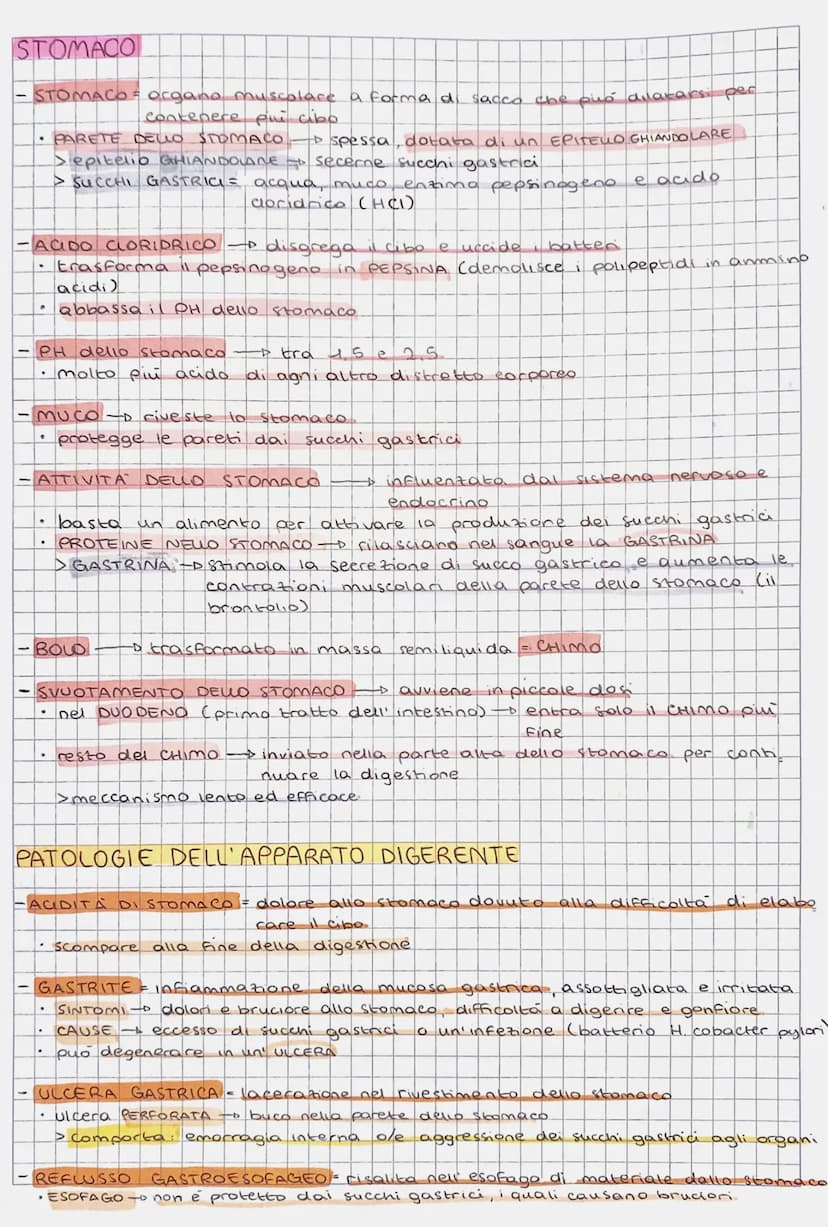 STOMACO
- STOMACO = organo muscolare a forma di sacco che può dilatarsi per
contenere più cibo
• PARETE DELLO STOMACO → spessa, dotata di un EPITELIO GHIANDOLARE
> epitelio GHIANDOLARE → secerne succhi gastrici
> SUCCHI GASTRICI = acqua, muco, enzima pepsinogeno e acido
cloridrico (HCl)
- ACIDO CLORIDRICO → disgrega il cibo e uccide i batteri
• trasforma il pepsinogeno in PEPSINA (demolisce i polipeptidi in ammino
acidi)
• abbassa il PH dello stomaco
- PH dello stomaco → tra 1,5 e 2,5
• molto più acido di agni altro distretto corporeo
- MUCO → riveste lo stomaco
• protegge le pareti dai succhi gastrici
- ATTIVITÀ DELLO STOMACO → influenzata dal sistema nervoso e
endocrino
• basta un alimento per attivare la produzione dei succhi gastrici
• PROTEINE NELLO STOMACO → rilasciano nel sangue la GASTRINA
> GASTRINA → stimola la secrezione di succo gastrico e aumenta le
contrazioni muscolari della parete dello stomaco (il
brontolio)
- BOLO → trasformato in massa semiliquida = CHIMO
- SVUOTAMENTO DELLO STOMACO → avviene in piccole dosi
• nel DUODENO (primo tratto dell'intestino) → entra solo il CHIMO più
fine
• resto del CHIMO → inviato nella parte alta dello stomaco per conti
nuare la digestione
> meccanismo lento ed efficace
PATOLOGIE DELL'APPARATO DIGERENTE
- ACIDITÀ DI STOMACO = dolore allo stomaco dovuto alla difficoltà di elabo
rare il cibo
• scompare alla fine della digestione
- GASTRITE = infiammazione della mucosa gastrica, assottigliata e irritata
• SINTOMI → dolori e bruciore allo stomaco, difficoltà a digerire e gonfiore
• CAUSE → eccesso di succhi gastrici o un'infezione (batterio H. cobacter pylori)
• può degenerare in un'ULCERA
- ULCERA GASTRICA = lacerazione nel rivestimento dello stomaco
• ulcera PERFORATA → buco nella parete dello stomaco
> comporta: emorragia interna o/e aggressione dei succhi gastrici agli organi
- REFLUSSO GASTROESOFAGEO = risalita nell'esofago di materiale dallo stomaco
• ESOFAGO → non è protetto dai succhi gastrici, i quali causano bruciori